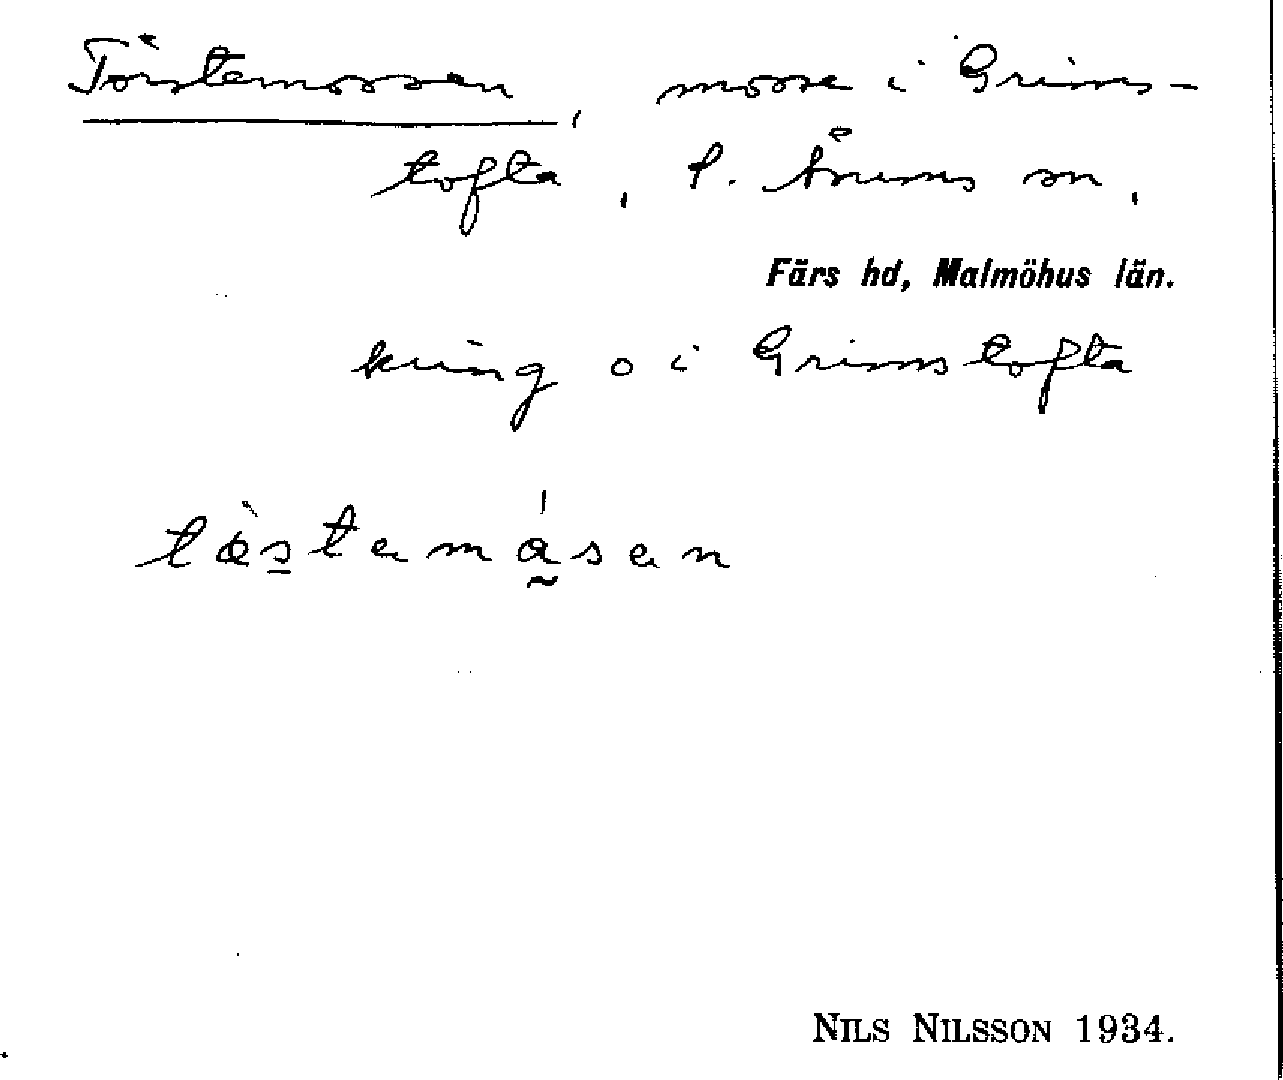 Törstemossen, mosse i Grims-
tofta, S. Åsums sn,
Färs hd, Malmöhus län.
kring o i Grimstofta
tɶ̀s̱temá̰sen
NILS NILSSON 1934.